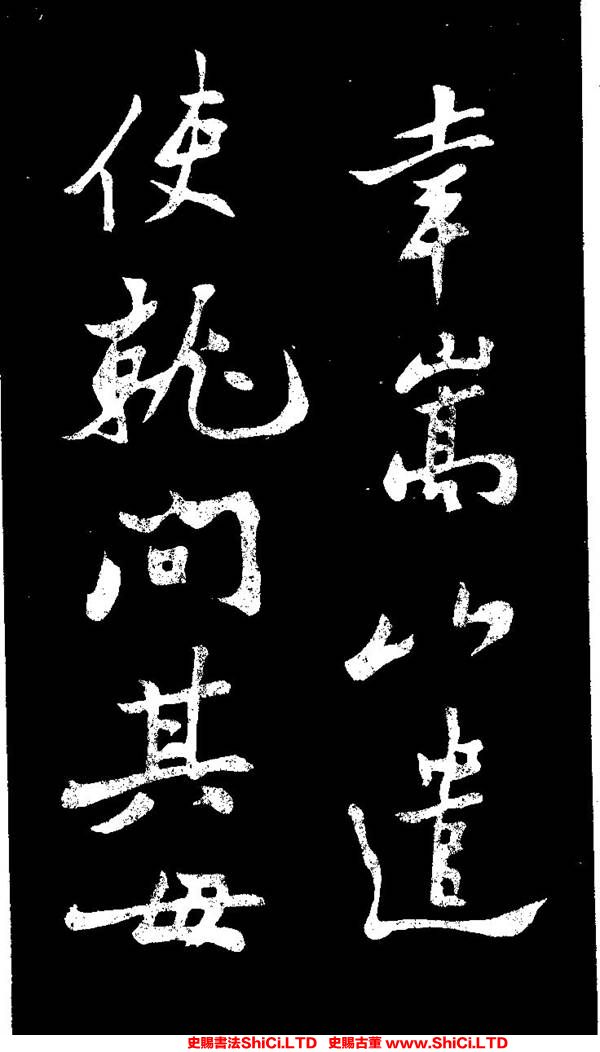 幸嵩山遣
使就問其母
史賜書法ShiCi.LTD 史賜古董 www.ShiCi.LTD